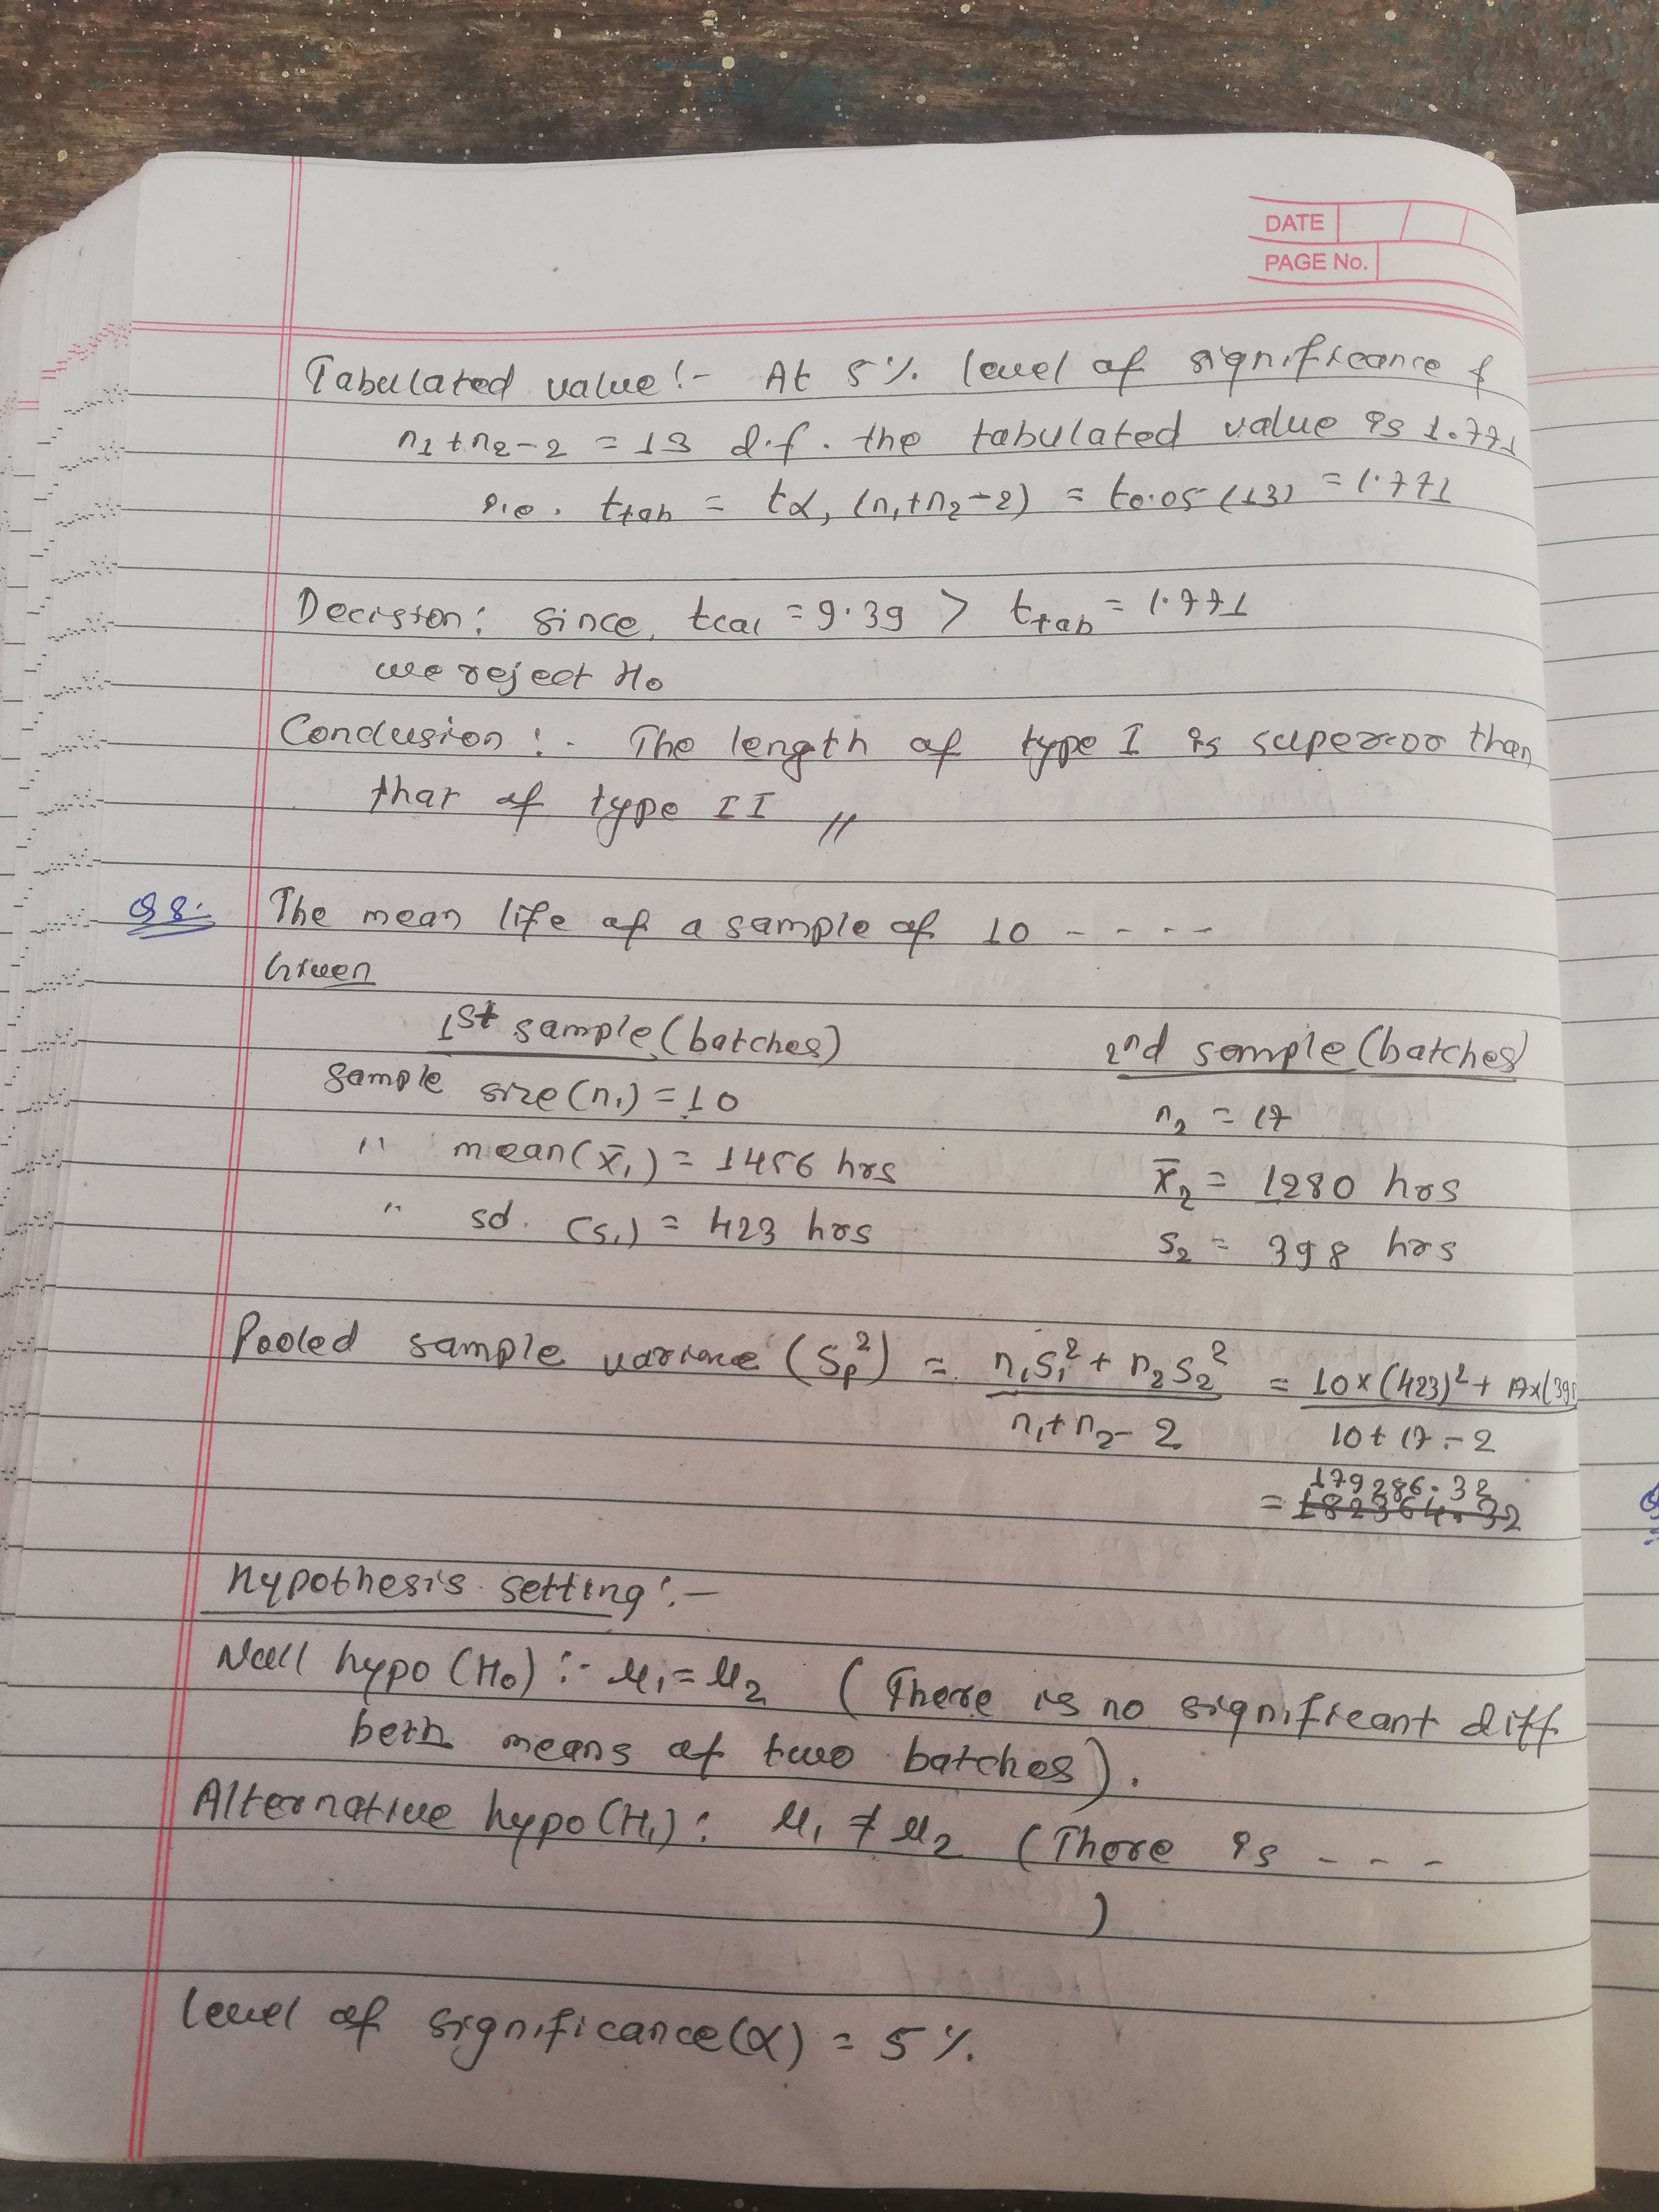 DATE
PAGE No.
Tabulated value :- At 5% level of significance &
n1+n2-2 = 13 d.f. the tabulated value is 1.771
i.e. ttab = tα, (n1+n2-2) = t0.05 (13) = 1.771
Decision: since, tcal = 9.39 > ttab = 1.771
we reject H0
Conclusion :- The length of type I is superior than
that of type II //
Q8. The mean life of a sample of 10 - - - -
Given
1st sample (batches) 2nd sample (batches)
sample size (n1) = 10 n2 = 17
" mean (x̄1) = 1456 hrs x̄2 = 1280 hrs
" sd. (s1) = 423 hrs s2 = 398 hrs
Pooled sample variance (Sp²) = n1s1² + n2s2² / n1+n2-2 = 10×(423)² + 17×(398 / 10+17-2
= 179286.32
Hypothesis setting :-
Null hypo (H0) :- μ1 = μ2 (There is no significant diff
betn means of two batches).
Alternative hypo (H1) : μ1 ≠ μ2 (There is - - -
)
level of significance (α) = 5%